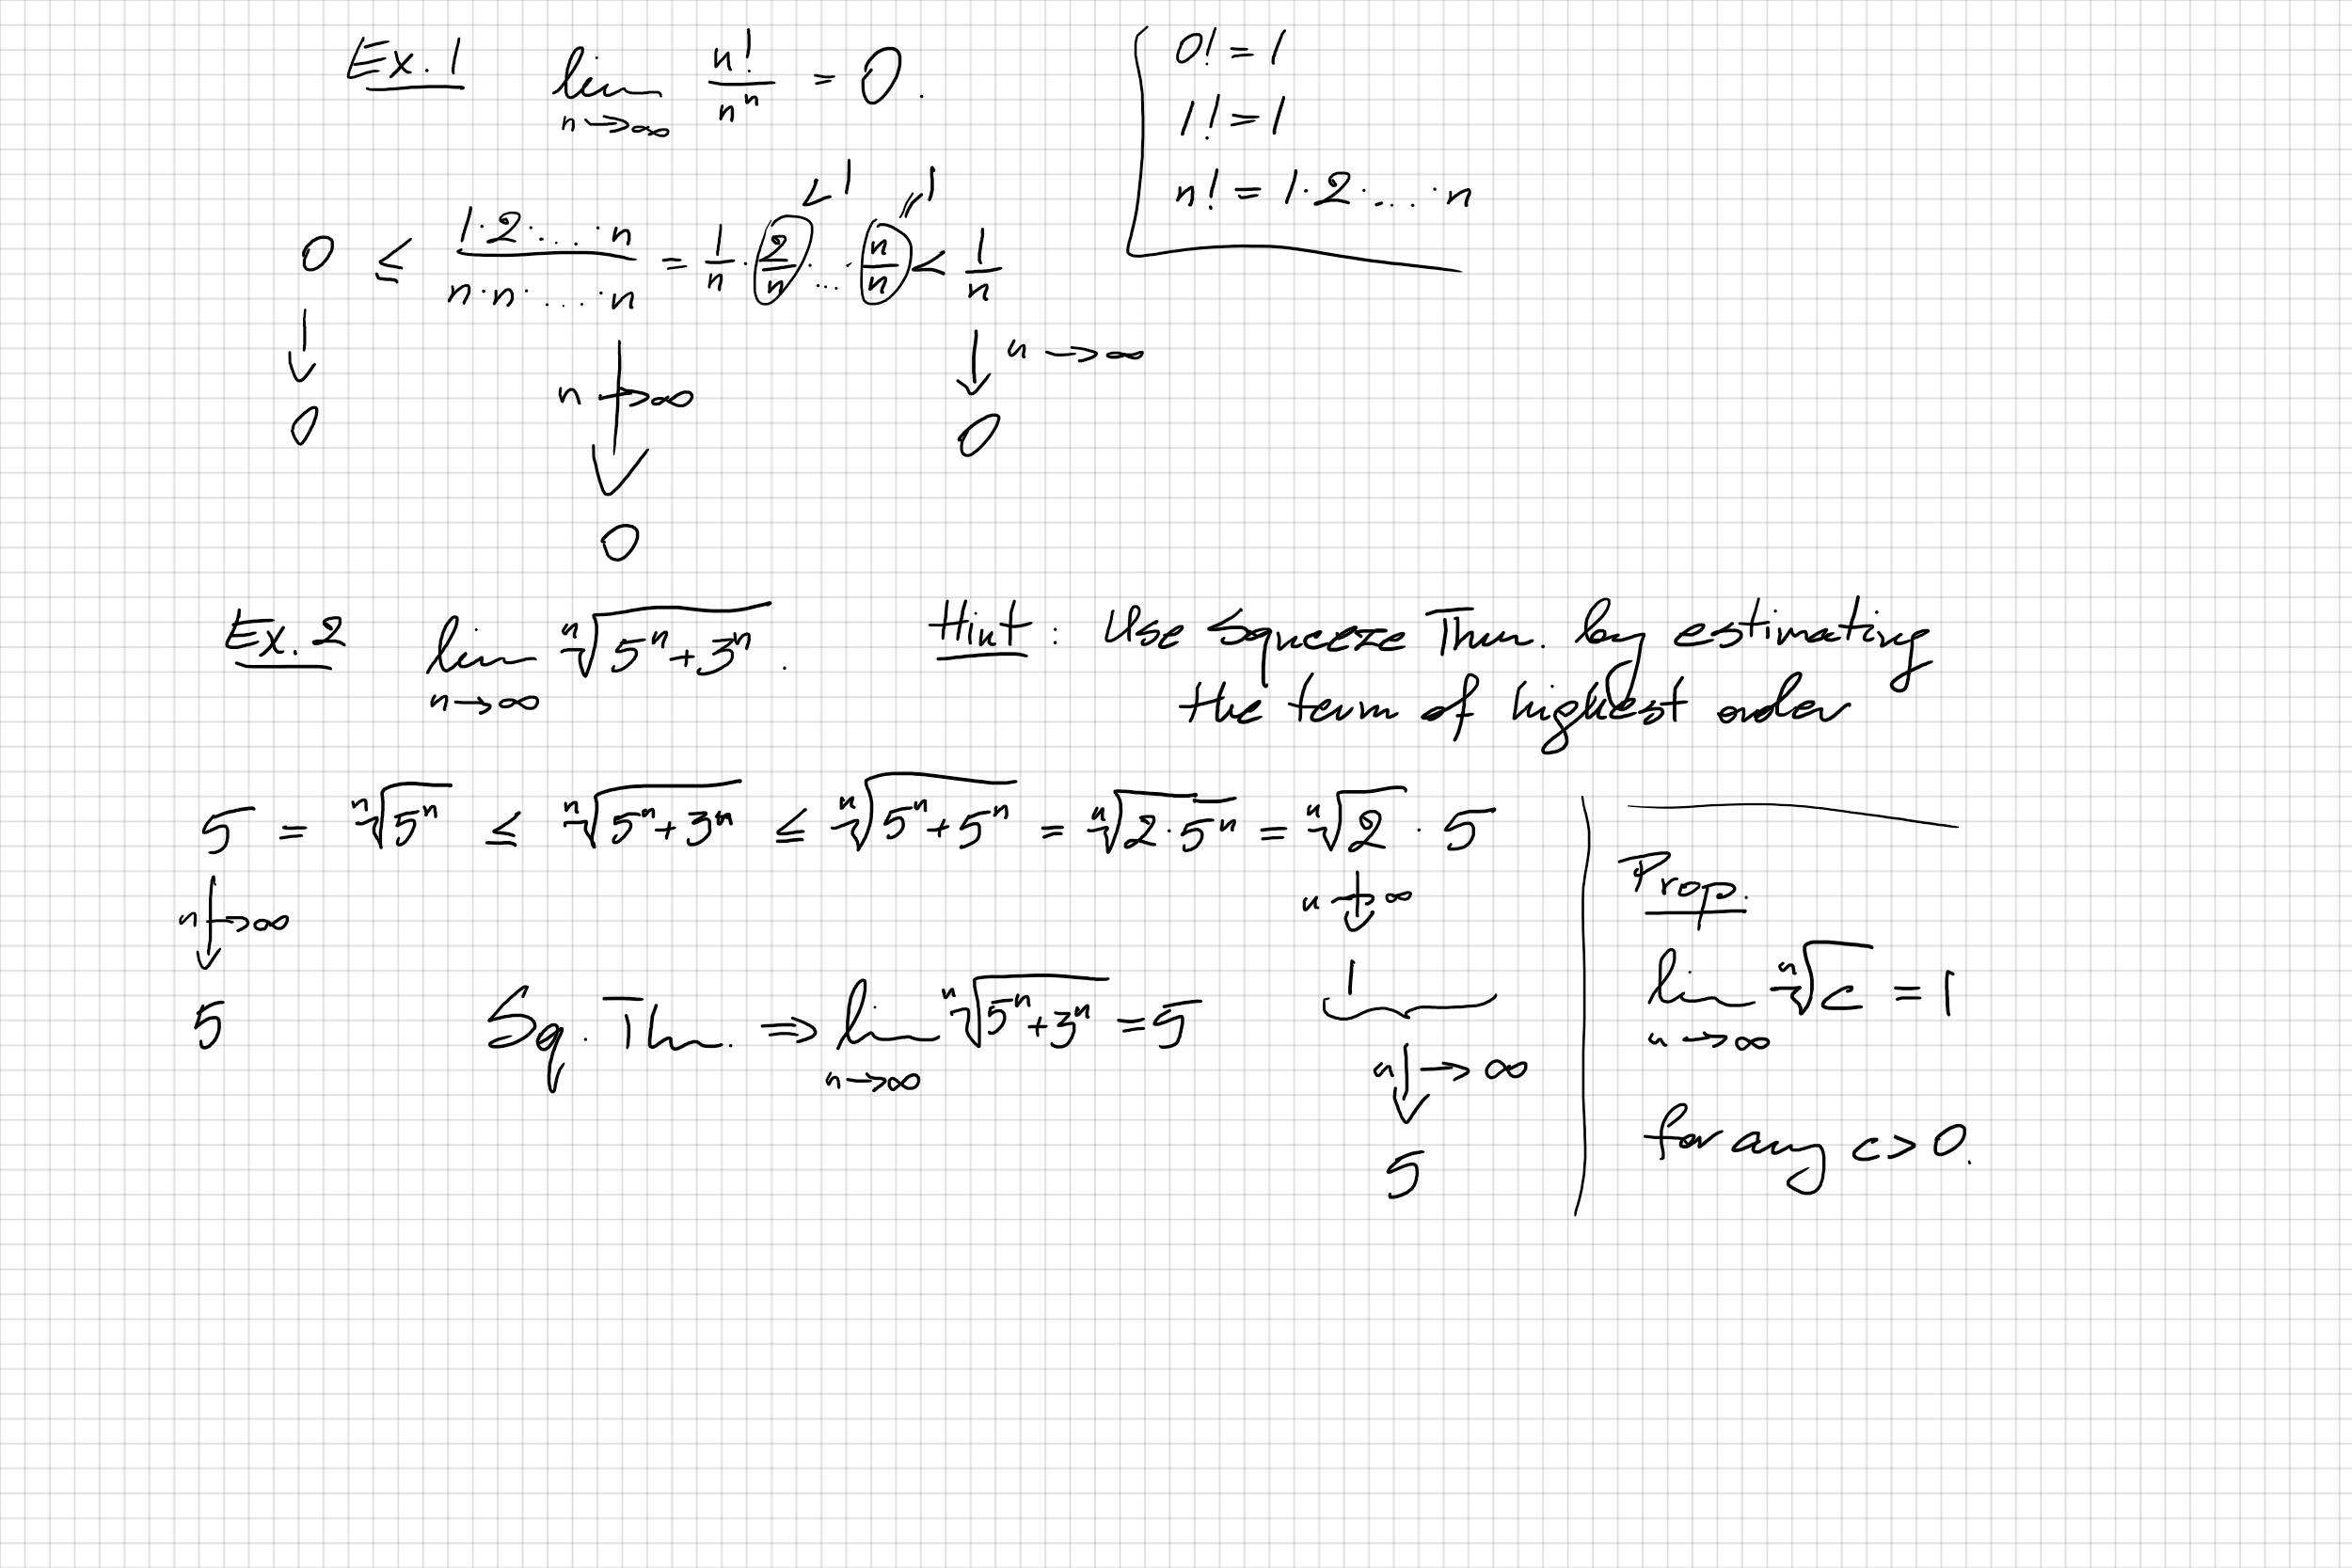 Ex. 1 lim n→∞ n!/nⁿ = 0.
0! = 1
1! = 1
n! = 1·2·...·n
0 ≤ 1·2·...·n / n·n·...·n = 1/n · 2/n · ... · n/n < 1/n
<1 =1
↓ 0
n→∞ ↓ 0
↓ n→∞ 0
Ex. 2 lim n→∞ ⁿ√(5ⁿ+3ⁿ).
Hint: Use Squeeze Thm. by estimating
the term of highest order
5 = ⁿ√5ⁿ ≤ ⁿ√(5ⁿ+3ⁿ) ≤ ⁿ√(5ⁿ+5ⁿ) = ⁿ√(2·5ⁿ) = ⁿ√2 · 5
n→∞ ↓ 5
n→∞ ↓ 1
n→∞ ↓ 5
Sq. Thm. ⇒ lim n→∞ ⁿ√(5ⁿ+3ⁿ) = 5
Prop.
lim n→∞ ⁿ√c = 1
for any c>0.